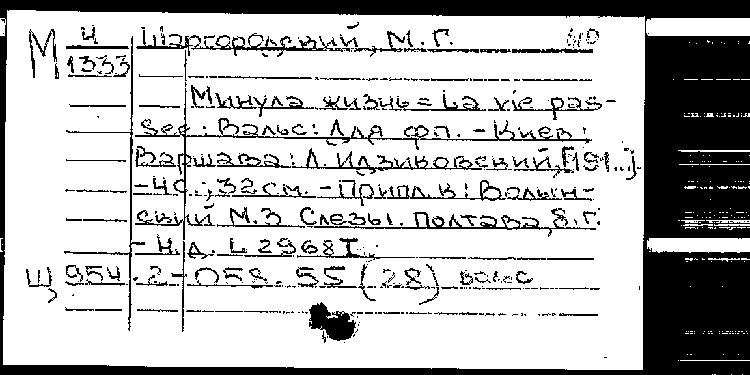 М 4 Шаргородский, М.Г. МО
1333
Минула жизнь = La vie pas-
see: Вальс: Для фп. - Киев;
Варшава: Л. Идзиковский, [191..].
- 4 с.; 32 см. - Припл. к: Волын-
ский М.З Слезы. Полтава, Б.г.
- Н.д. L 2968 I.
Щ 954.2-058.55 (28) вальс